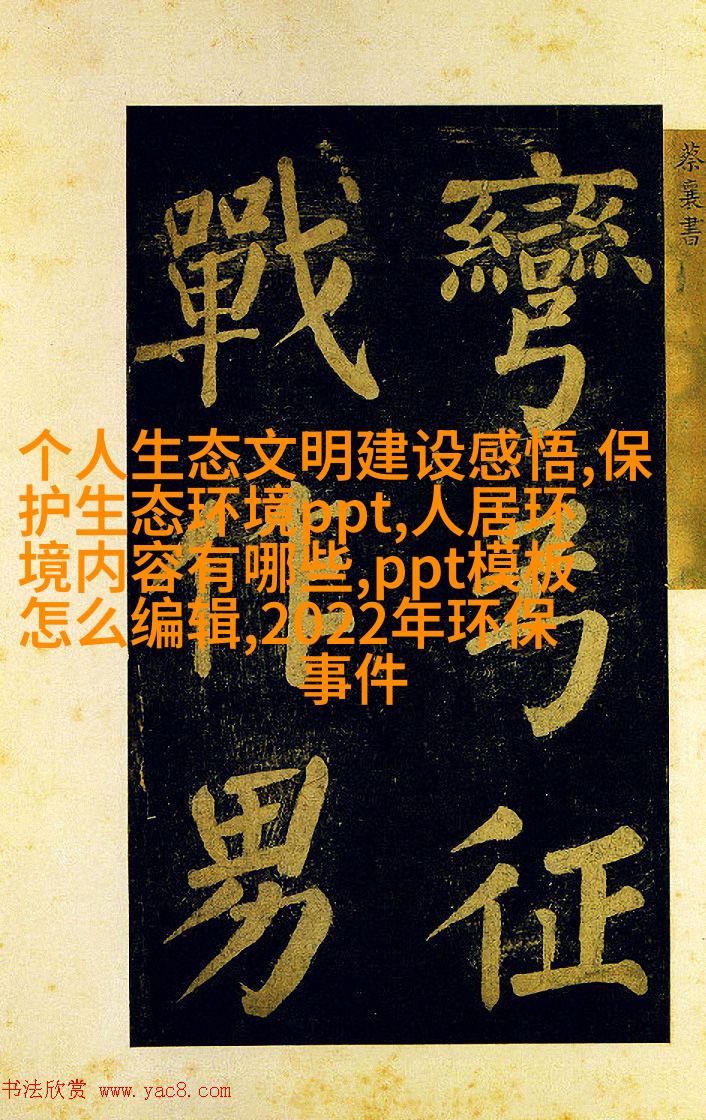 蔡襄書
彎弓征
戰作男
个人生态文明建设感悟,保
护生态环境ppt,人居环
境内容有哪些,ppt模板
怎么编辑,2022年环保
事件
书法欣赏 www.yac8.com